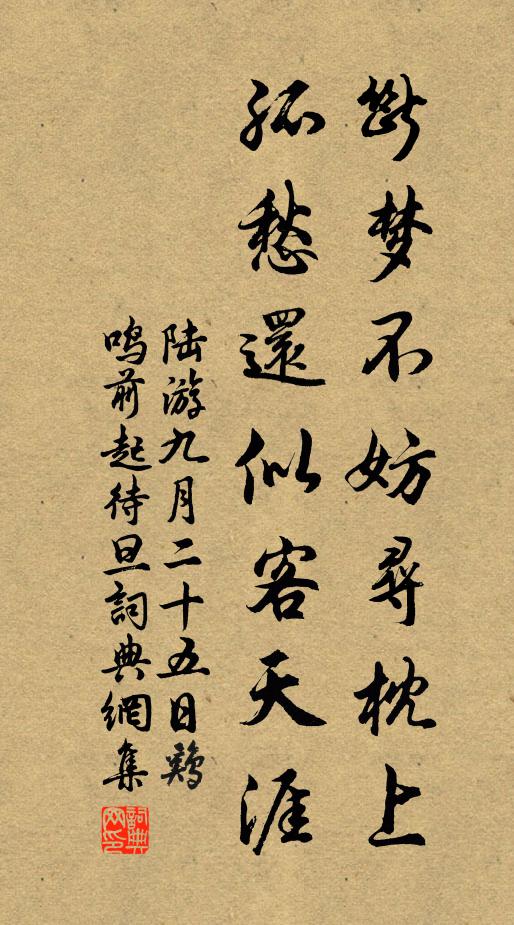 断梦不妨寻枕上
孤愁還似客天涯
陆游九月二十五日鷄
鸣前起待旦詞典網集
詞典
网印